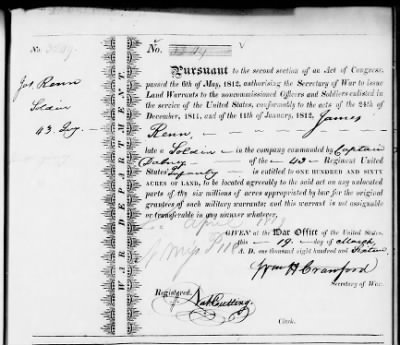 No.
Jas. Renn
Soldier
43. Inf.
WAR DEPARTMENT.
No.
Pursuant to the second section of an Act of Congress,
passed the 6th of May, 1812, authorising the Secretary of War to issue
Land Warrants to the noncommissioned Officers and Soldiers enlisted in
the service of the United States, conformably to the acts of the 24th of
December, 1811, and of the 11th of January, 1812, James
Renn,
late a Soldier in the company commanded by Captain
Dabney of the 43 Regiment United
States Infantry is ENTITLED to ONE HUNDRED AND SIXTY
ACRES OF LAND, to be located agreeably to the said act on any unlocated
parts of the six millions of acres appropriated by law for the original
grantees of such military warrants; and this warrant is not assignable
or transferable in any manner whatever.
April
GIVEN at the War Office of the United States,
this 19. day of March,
A. D. one thousand eight hundred and Sixteen
Wm H Crawford
Secretary of War.
Registered,
Nat Cutting.
Clerk.